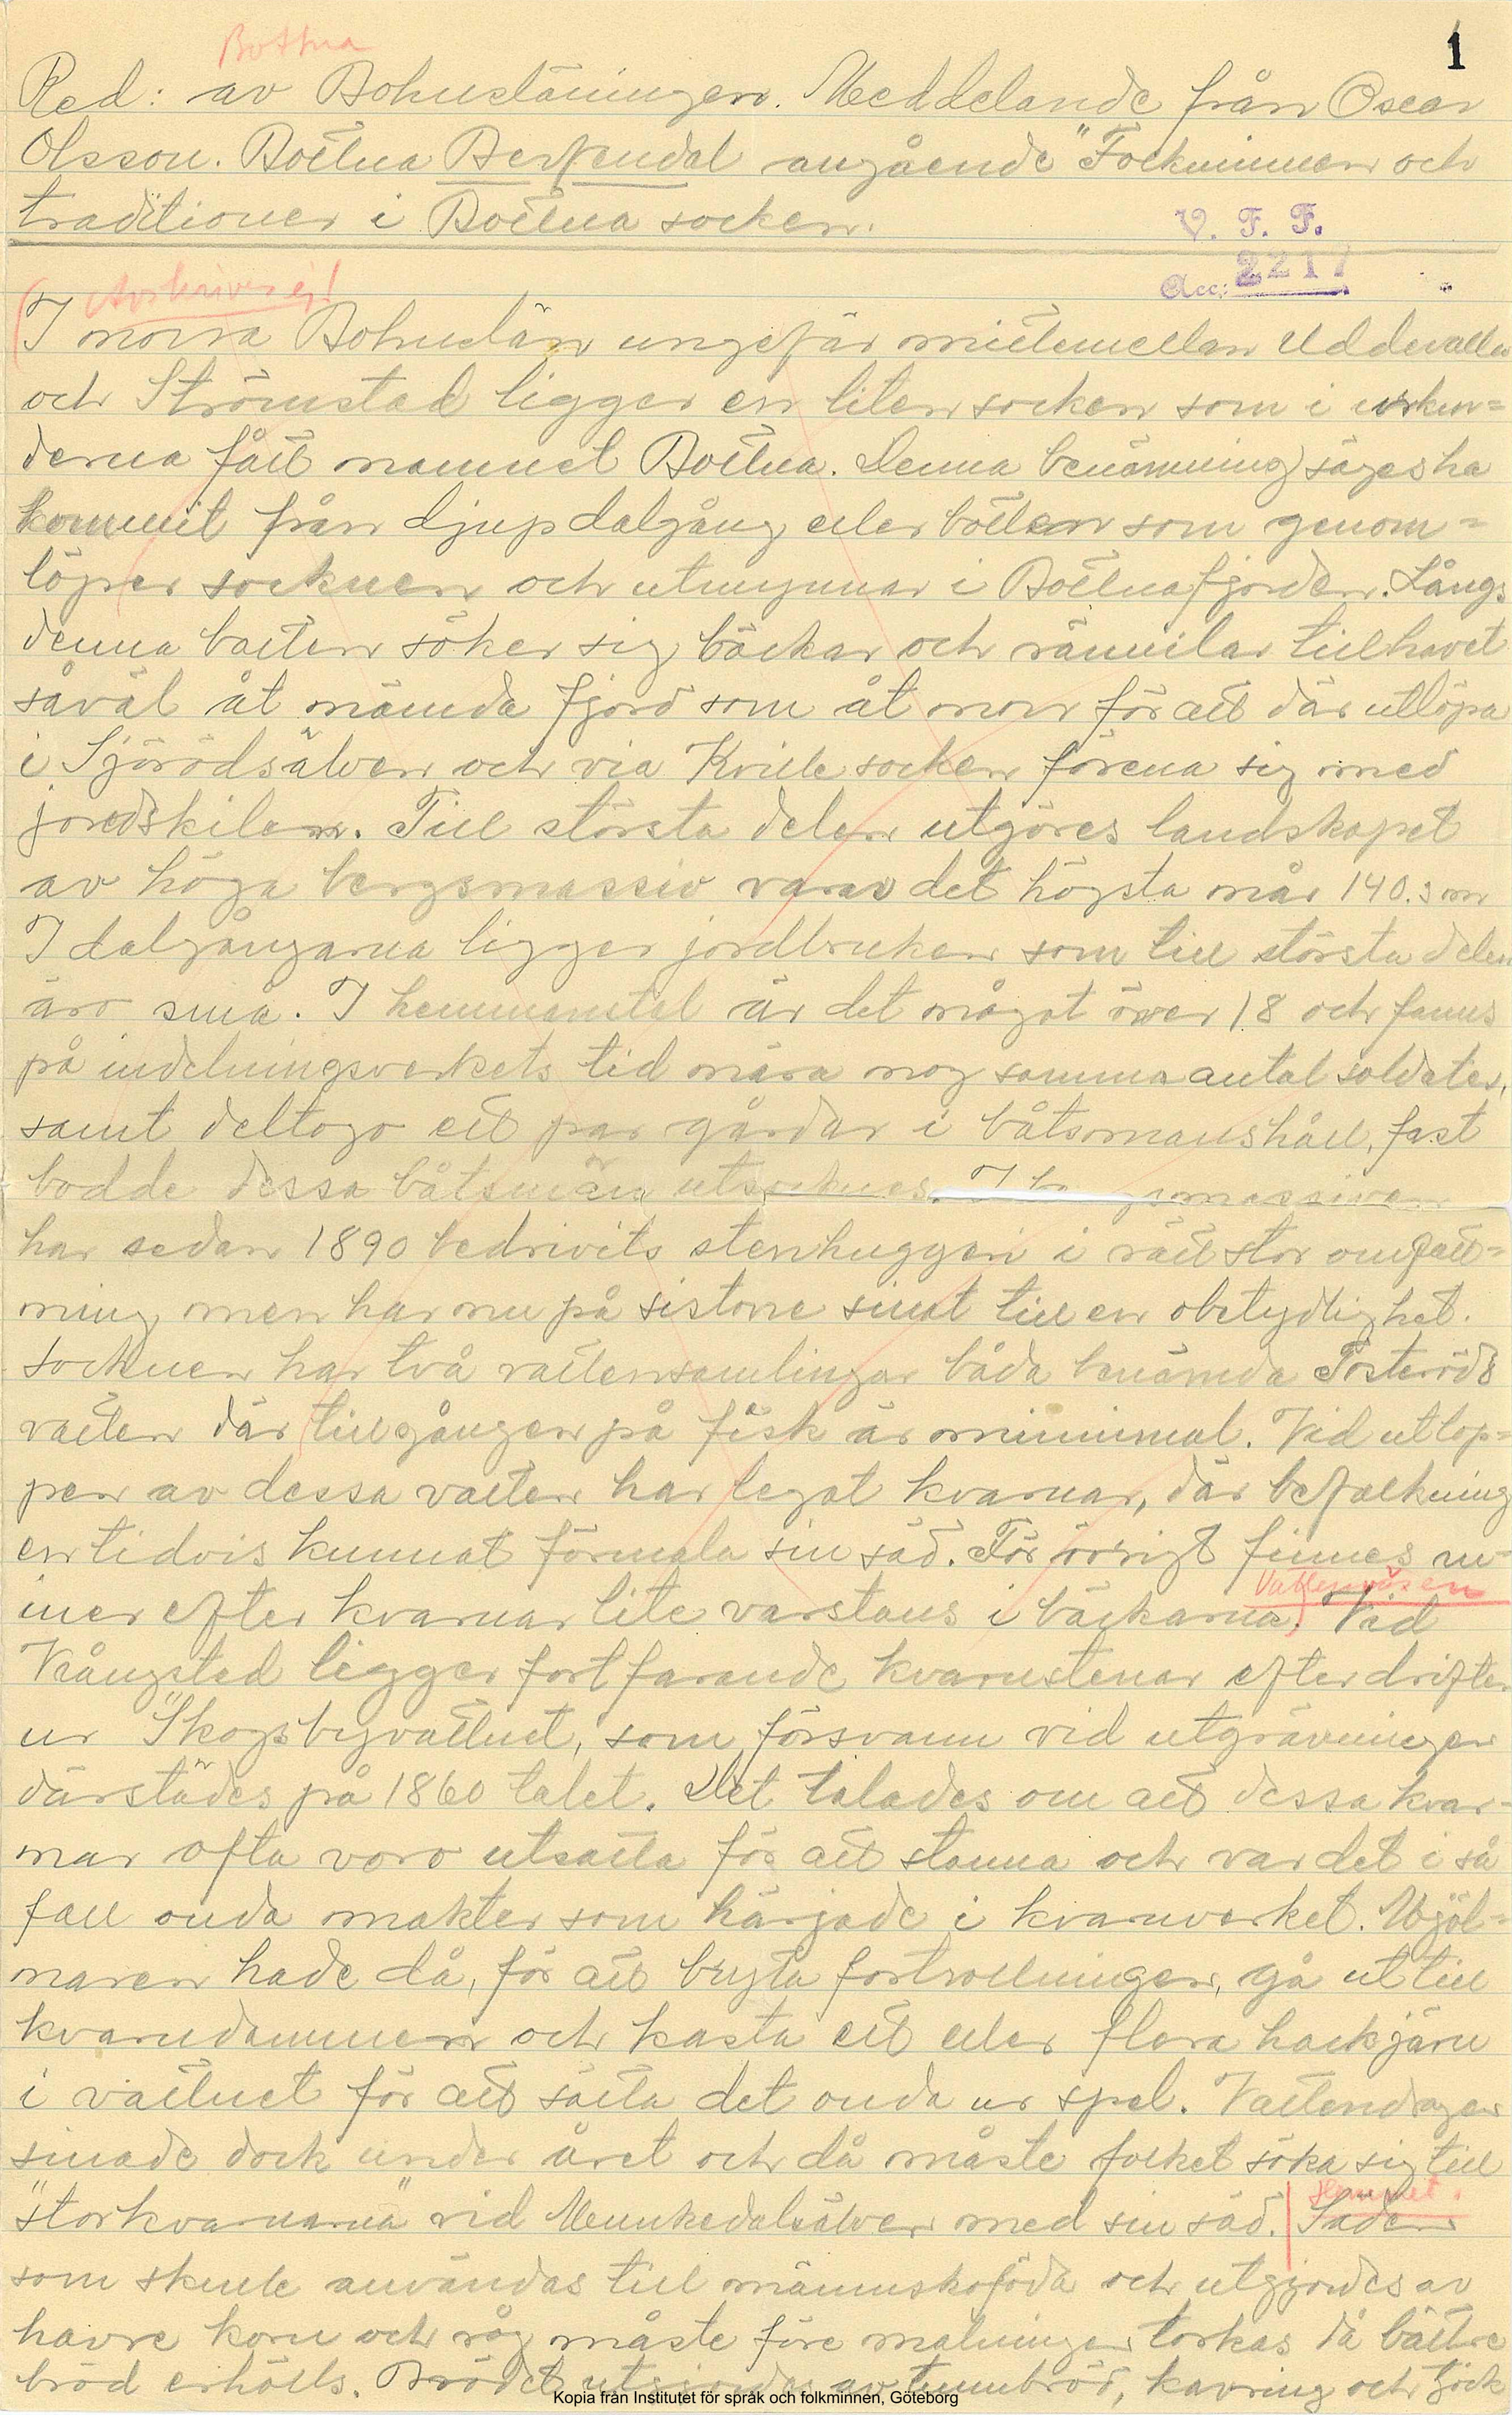 1
Bottna
Red: av Bohusläningen. Meddelande från Oscar
Olsson. Bottna Berfendal angående "Folkminnen och
traditioner i Bottna socken.
V. F. F.
Acc: 2217
Avskrives ej!
I norra Bohuslän ungefär mittemellan Uddevalla
och Strömstad ligger en liten socken som i urkun=
derna fått namnet Bottna. Denna benämning säges ha
kommit från djup dalgång eller botten som genom=
löper socknen och utmynnar i Bottnafjorden. Långs
denna botten söker sig bäckar och rännilar till havet
såväl åt nämda fjord som åt norr för att där utlöpa
i Sjörödsälven och via Kville socken förena sig med
jordskilen. Till största delen utgöres landskapet
av höga bergsmassiv varav det högsta når 140.3 m
I dalgångarna ligger jordbruken som till största delen
äro små. I hemmantal är det något över 18 och fanns
på indelningsverkets tid nära nog samma antal soldater,
samt deltogo ett par gårdar i båtsmanshåll, fast
bodde dessa båtsmän utsocknes. I bergsmassiven
har sedan 1890 bedrivits stenhuggeri i rätt stor omfatt=
ning, men har nu på sistone sinat till en obetydlighet.
Socknen har två vattensamlingar båda benämda Tosteröds
vatten där tillgången på fisk är minimal. Vid utlop=
pen av dessa vatten har legat kvarnar, där befolkning
en tidvis kunnat förmala sin säd. För övrigt finnes ru-
iner efter kvarnar lite varstans i bäckarna. Vid
Vattenväsen
Vrångstad ligger fortfarande kvarnstenar efter driften
ur "Skogsbyvattnet, som försvann vid utgrävningen
därstädes på 1860 talet. Det talades om att dessa kvar-
nar ofta voro utsatta för att stanna och var det i så
fall onda makter som härjade i kvarnverket. Mjöl=
naren hade då, för att bryta förtrollningen, gå ut till
kvarndammen och kasta ett eller flera hackjärn
i vattnet för att sätta det onda ur spel. Vattendragen
sinade dock under året och då måste folket söka sig till
"storkvarnarna" vid Munkedalsälven med sin säd. Säden
Hemmet.
som skulle användas till människoföda och utgjordes av
havre korn och råg måste före malningen torkas då bättre
bröd erhölls. Brödet utgjordes av tunnbröd, kavring och tjock
Kopia från Institutet för språk och folkminnen, Göteborg